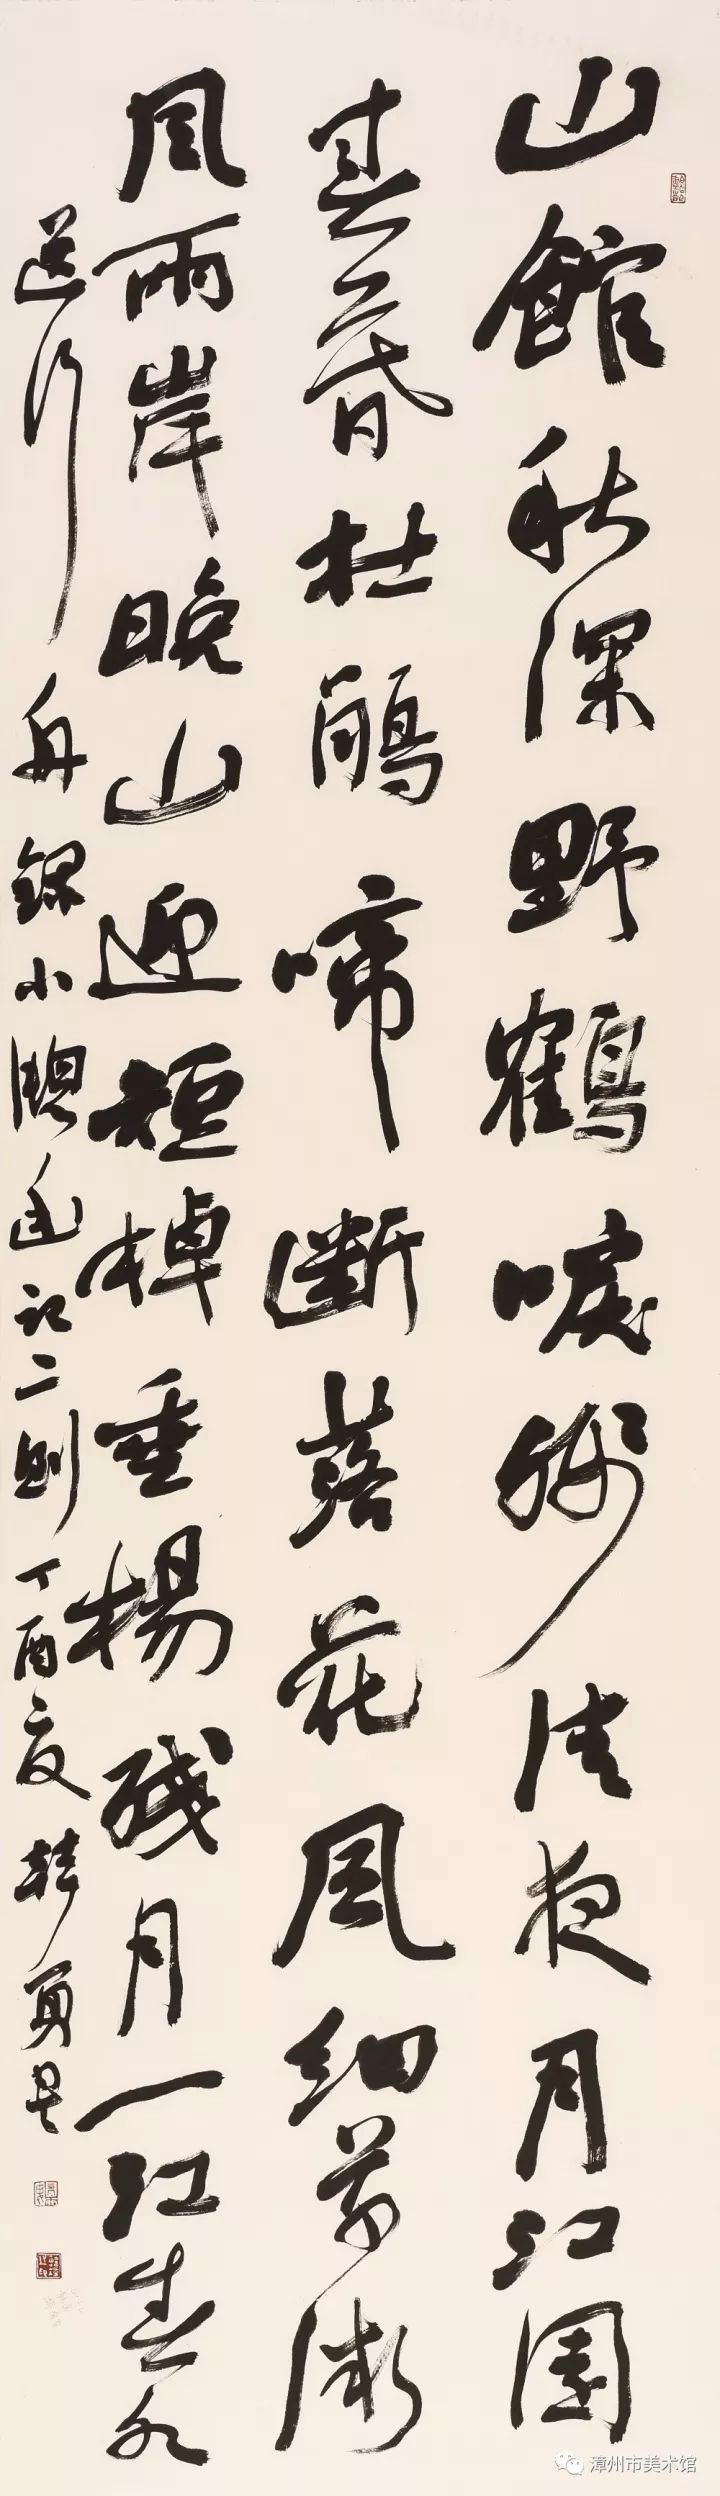 山館秋深野鶴唳殘清夜月江園
春暮杜鵑啼斷落花風細草微
風兩岸晚山迎短棹垂楊殘月一江春水
送行 舟 錄小牕幽記二則 丁酉夏 韓勇書
漳州市美术馆